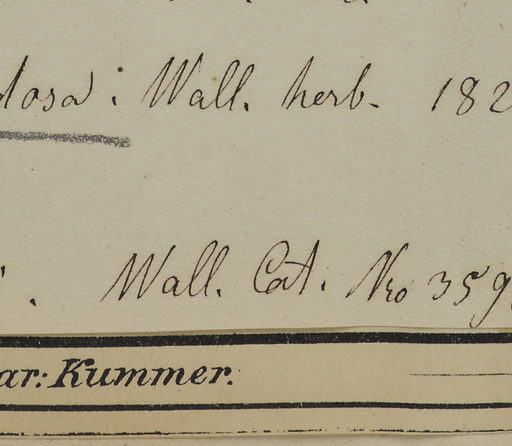 losa: Wall. herb. 182
Wall. Cat. Nro 359
ar: Kummer.